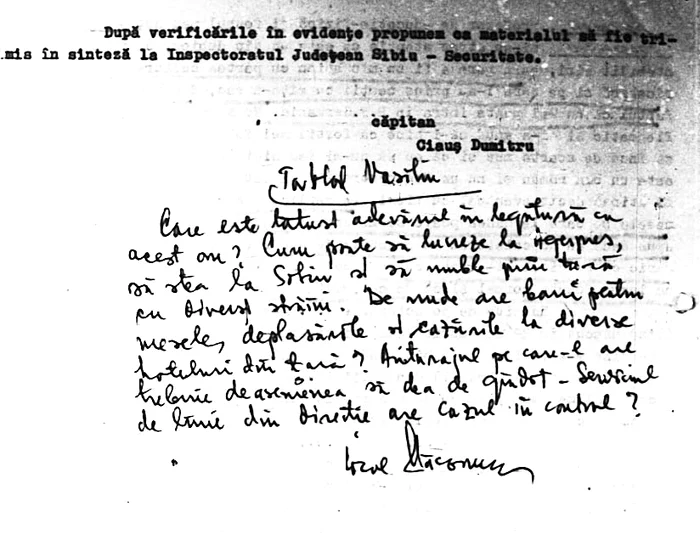 După verificările în evidențe propunem ca materialul să fie tri-
mis în sinteză la Inspectoratul Județean Sibiu - Securitate.
căpitan
Ciauș Dumitru
Vasiliu
Care este totuși adevărul în legătură cu
acest om? Cum poate să lucreze la
să stea la Sibiu și să umble prin țară
cu diverși străini. De unde are banii pentru
mesele, deplasările și cazările la diverse
hoteluri din țară? Anturajul pe care-l are
trebuie deasemenea să dea de gândit - Serviciul
de linie din Direcție are cazul în control?